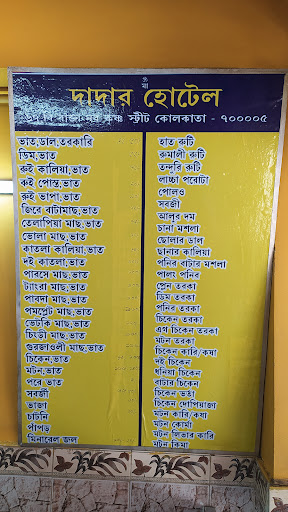 ওঁ মা
দাদার হোটেল
স্ট্রীট কোলকাতা - ৭০০০০৫
ভাত,ডাল,তরকারি
ডিম,ভাত
রুই কালিয়া,ভাত
রুই পোস্ত,ভাত
রুই ভাপা,ভাত
জিরে বাটামাছ,ভাত
তেলাপিয়া মাছ,ভাত
ভোলা মাছ,ভাত
কাতলা কালিয়া,ভাত
দই কাতলা,ভাত
পারসে মাছ,ভাত
ট্যাংরা মাছ,ভাত
পাবদা মাছ,ভাত
পমপ্লেট মাছ,ভাত
ভেটকি মাছ,ভাত
চিংড়ী মাছ,ভাত
গুরজাওলী মাছ,ভাত
চিকেন,ভাত
মটন,ভাত
পরে ভাত
সবজী
ভাজা
চাটনি
পাঁপড়
মিনারেল জল
হাত রুটি
রুমালী রুটি
তন্দুরি রুটি
লাচ্চা পরোটা
পোলও
সবজী
আলুর দম
চানা মশলা
ছোলার ডাল
ছানার কালিয়া
পনির বাটার মশলা
পালং পনির
প্লেন তরকা
ডিম তরকা
পনির তরকা
চিকেন তরকা
এগ চিকেন তরকা
মটন তরকা
চিকেন কারি/কষা
দই চিকেন
ধনিয়া চিকেন
বাটার চিকেন
চিকেন ভর্তা
চিকেন দোপিয়াজা
মটন কারি/কষা
মটন কোর্মা
মটন লিভার কারি
মটন কিমা